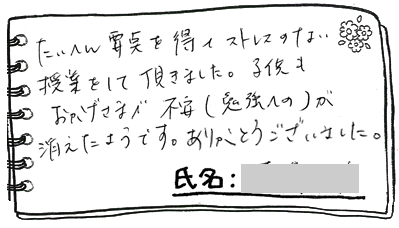 たいへん要点を得てストレスのない
授業をして頂きました。子供も
おかげさまで不安(勉強への)が
消えたようです。ありがとうございました。
氏名: